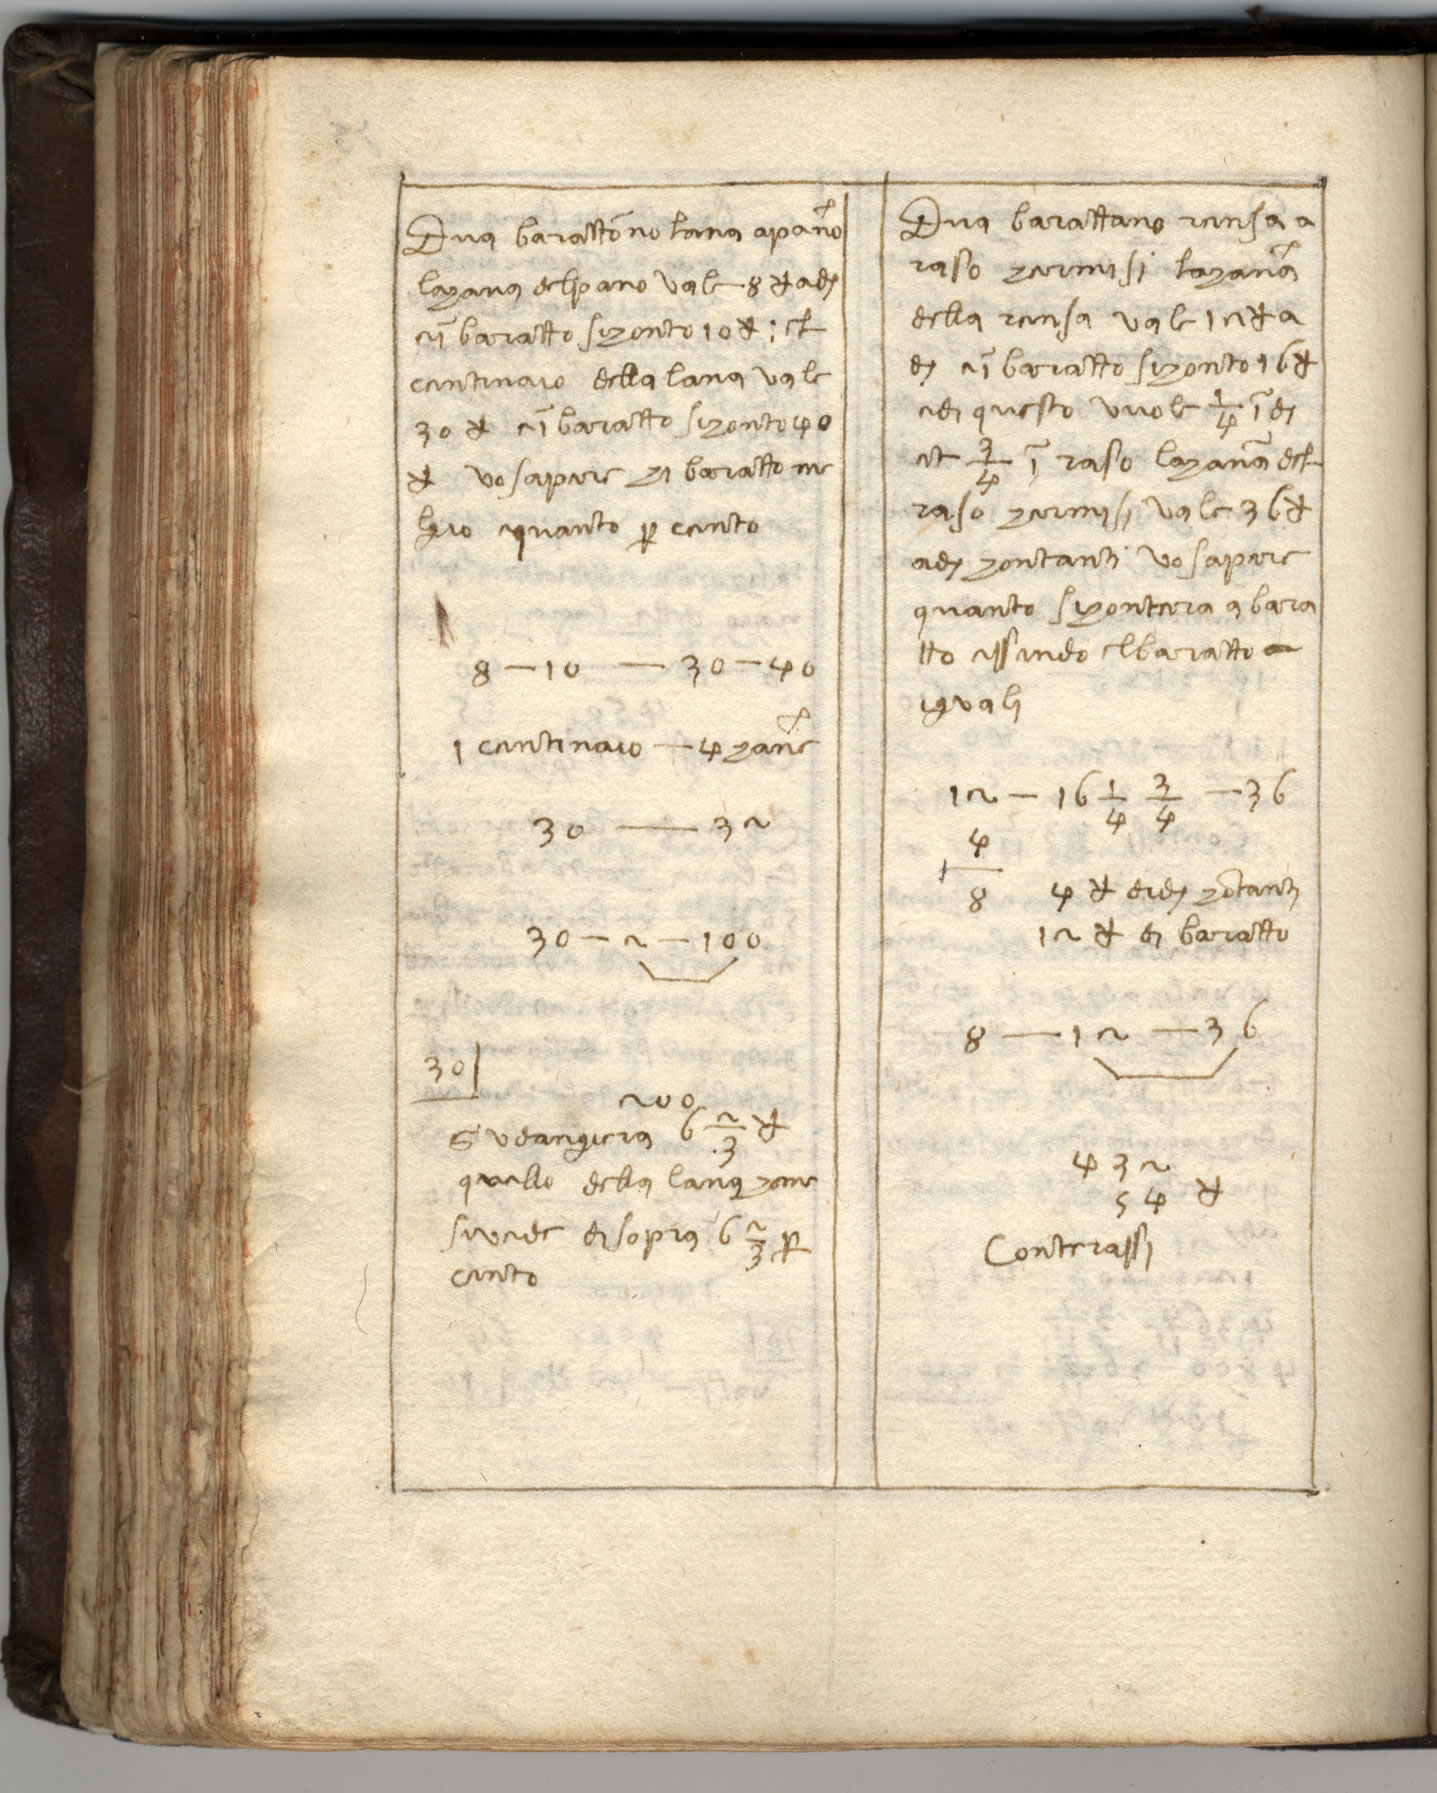 Dua baratto͂no lana apan̄o
lazana delpano vale 8 ℞ ade
ei͂ baratto sizonto 10 ℞ : el
centinaio della lana vale
30 ℞ ei͂ baratto sizonto 40
℞ vo sapere zi baratto me
lgio equanto p cento
8 — 10 — 30 — 40
1 centinaio — 4 zane
30 — 32
30 — 2 — 100
30
200
Sudangiera 6 2/3 ℞
quello della lana zome
sivede disopra 6 2/3 p
cento
Dua barattano rensa a
raso zermisi lazan̄a
della rensa vale 12 ℞ a
di ei͂ baratto sizonto 16 ℞
edi questo vuole 1/4 i͂ di
et 3/4 i͂ raso lazan̄a del
raso zermisi vale 36 ℞
adi zontanti vo sapere
quanto sizontera a bara
tto essendo elbaratto
iguali
12 — 16 1/4 3/4 — 36
4
8 4 ℞ didi zo͂tanti
12 ℞ di baratto
8 — 12 — 36
432
54 ℞
Conterassi